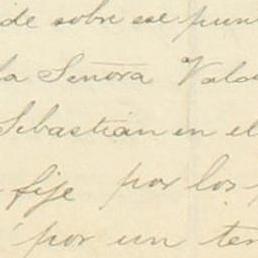 de sobre ese pun
la Señora Vald
Sebastián en el
fije por los
por un ten